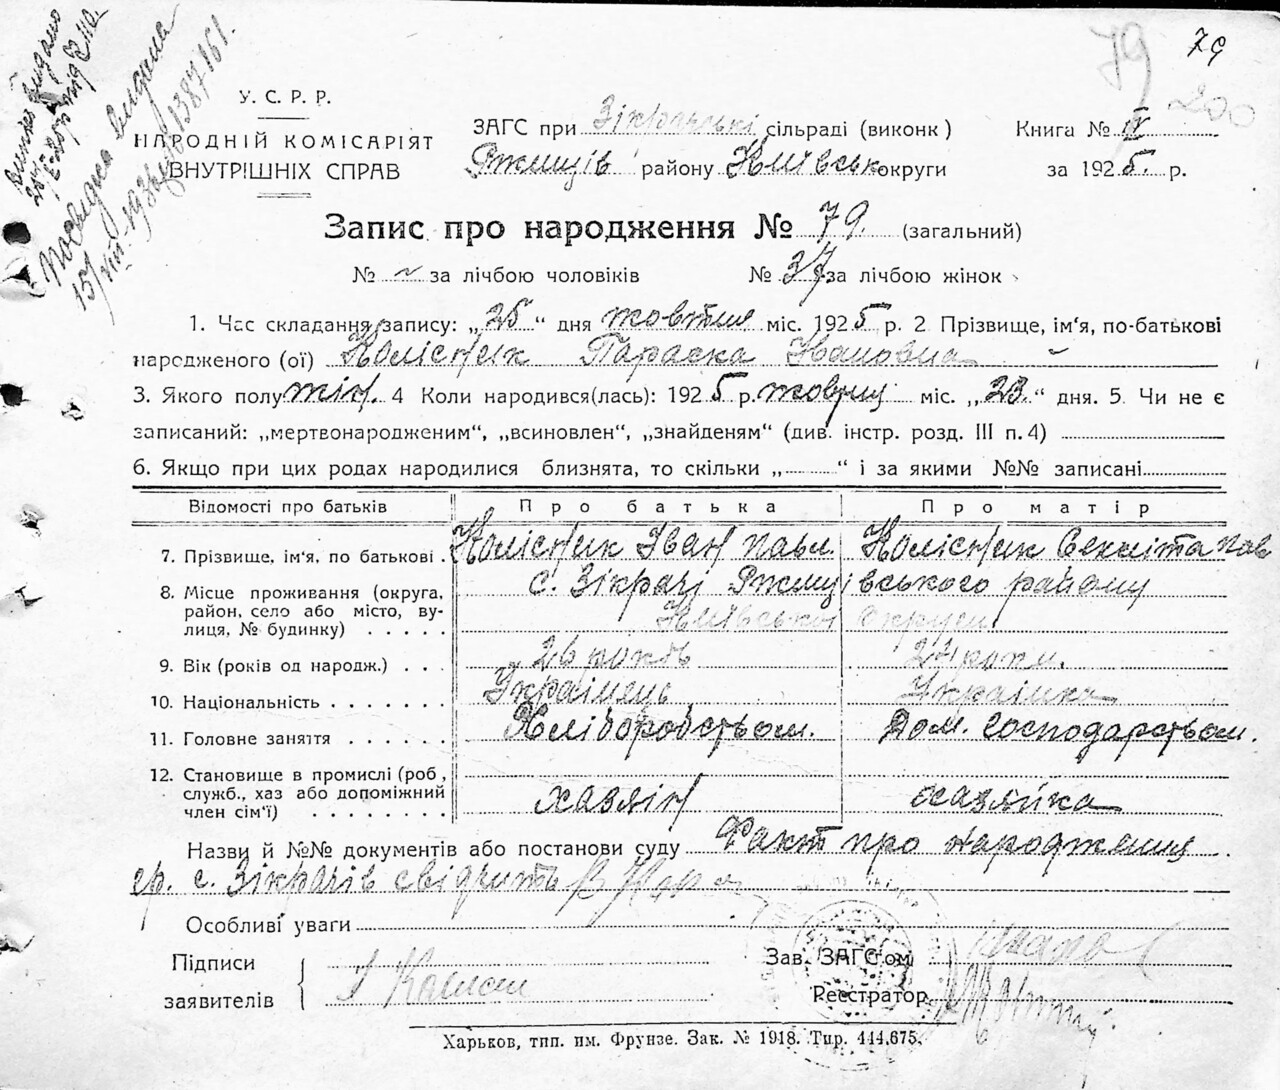 79
79
200
У. С. Р. Р.
НАРОДНІЙ КОМІСАРІЯТ
ВНУТРІШНІХ СПРАВ
ЗАГС при Зікрацькі сільраді (виконк)
Ржищів району Київськ округи
Книга № IV
за 1925 р.
Запис про народження № 79. (загальний)
№ ~ за лічбою чоловіків № 37 за лічбою жінок
1. Час складання запису: „25“ дня жовтня міс. 1925 р. 2 Прізвище, ім'я, по-батькові
народженого (ої) Колісник Параска Івановна
3. Якого полу жін. 4 Коли народився(лась): 1925 р. жовтня міс. „23.“ дня. 5. Чи не є
записаний: „мертвонародженим“, „всиновлен“, „знайденям“ (див. інстр. розд. III п. 4)
6. Якщо при цих родах народилися близнята, то скільки „ “ і за якими №№ записані
Відомості про батьків Про батька Про матір
7. Прізвище, ім'я, по батькові . Колісник Іван Павл. Колісник Секліта Пав
8. Місце проживання (округа, район, село або місто, вулиця, № будинку) с. Зікрачі Ржищівського району
Київської округи
9. Вік (років од народж.) 26 років 24 роки.
10. Національність Українець Українка
11. Головне заняття Хліборобством. Дом. господарством.
12. Становище в промислі (роб, служб., хаз або допоміжний член сім'ї) хазяїн хазяйка
Назви й №№ документів або постанови суду Факт про народження
гр. с. Зікрачів свідчить
Особливі уваги
Підписи
заявителів
Зав. ЗАГС'ом
Реєстратор
Харьков, тип. им. Фрунзе. Зак. № 1918. Тир. 444.675.